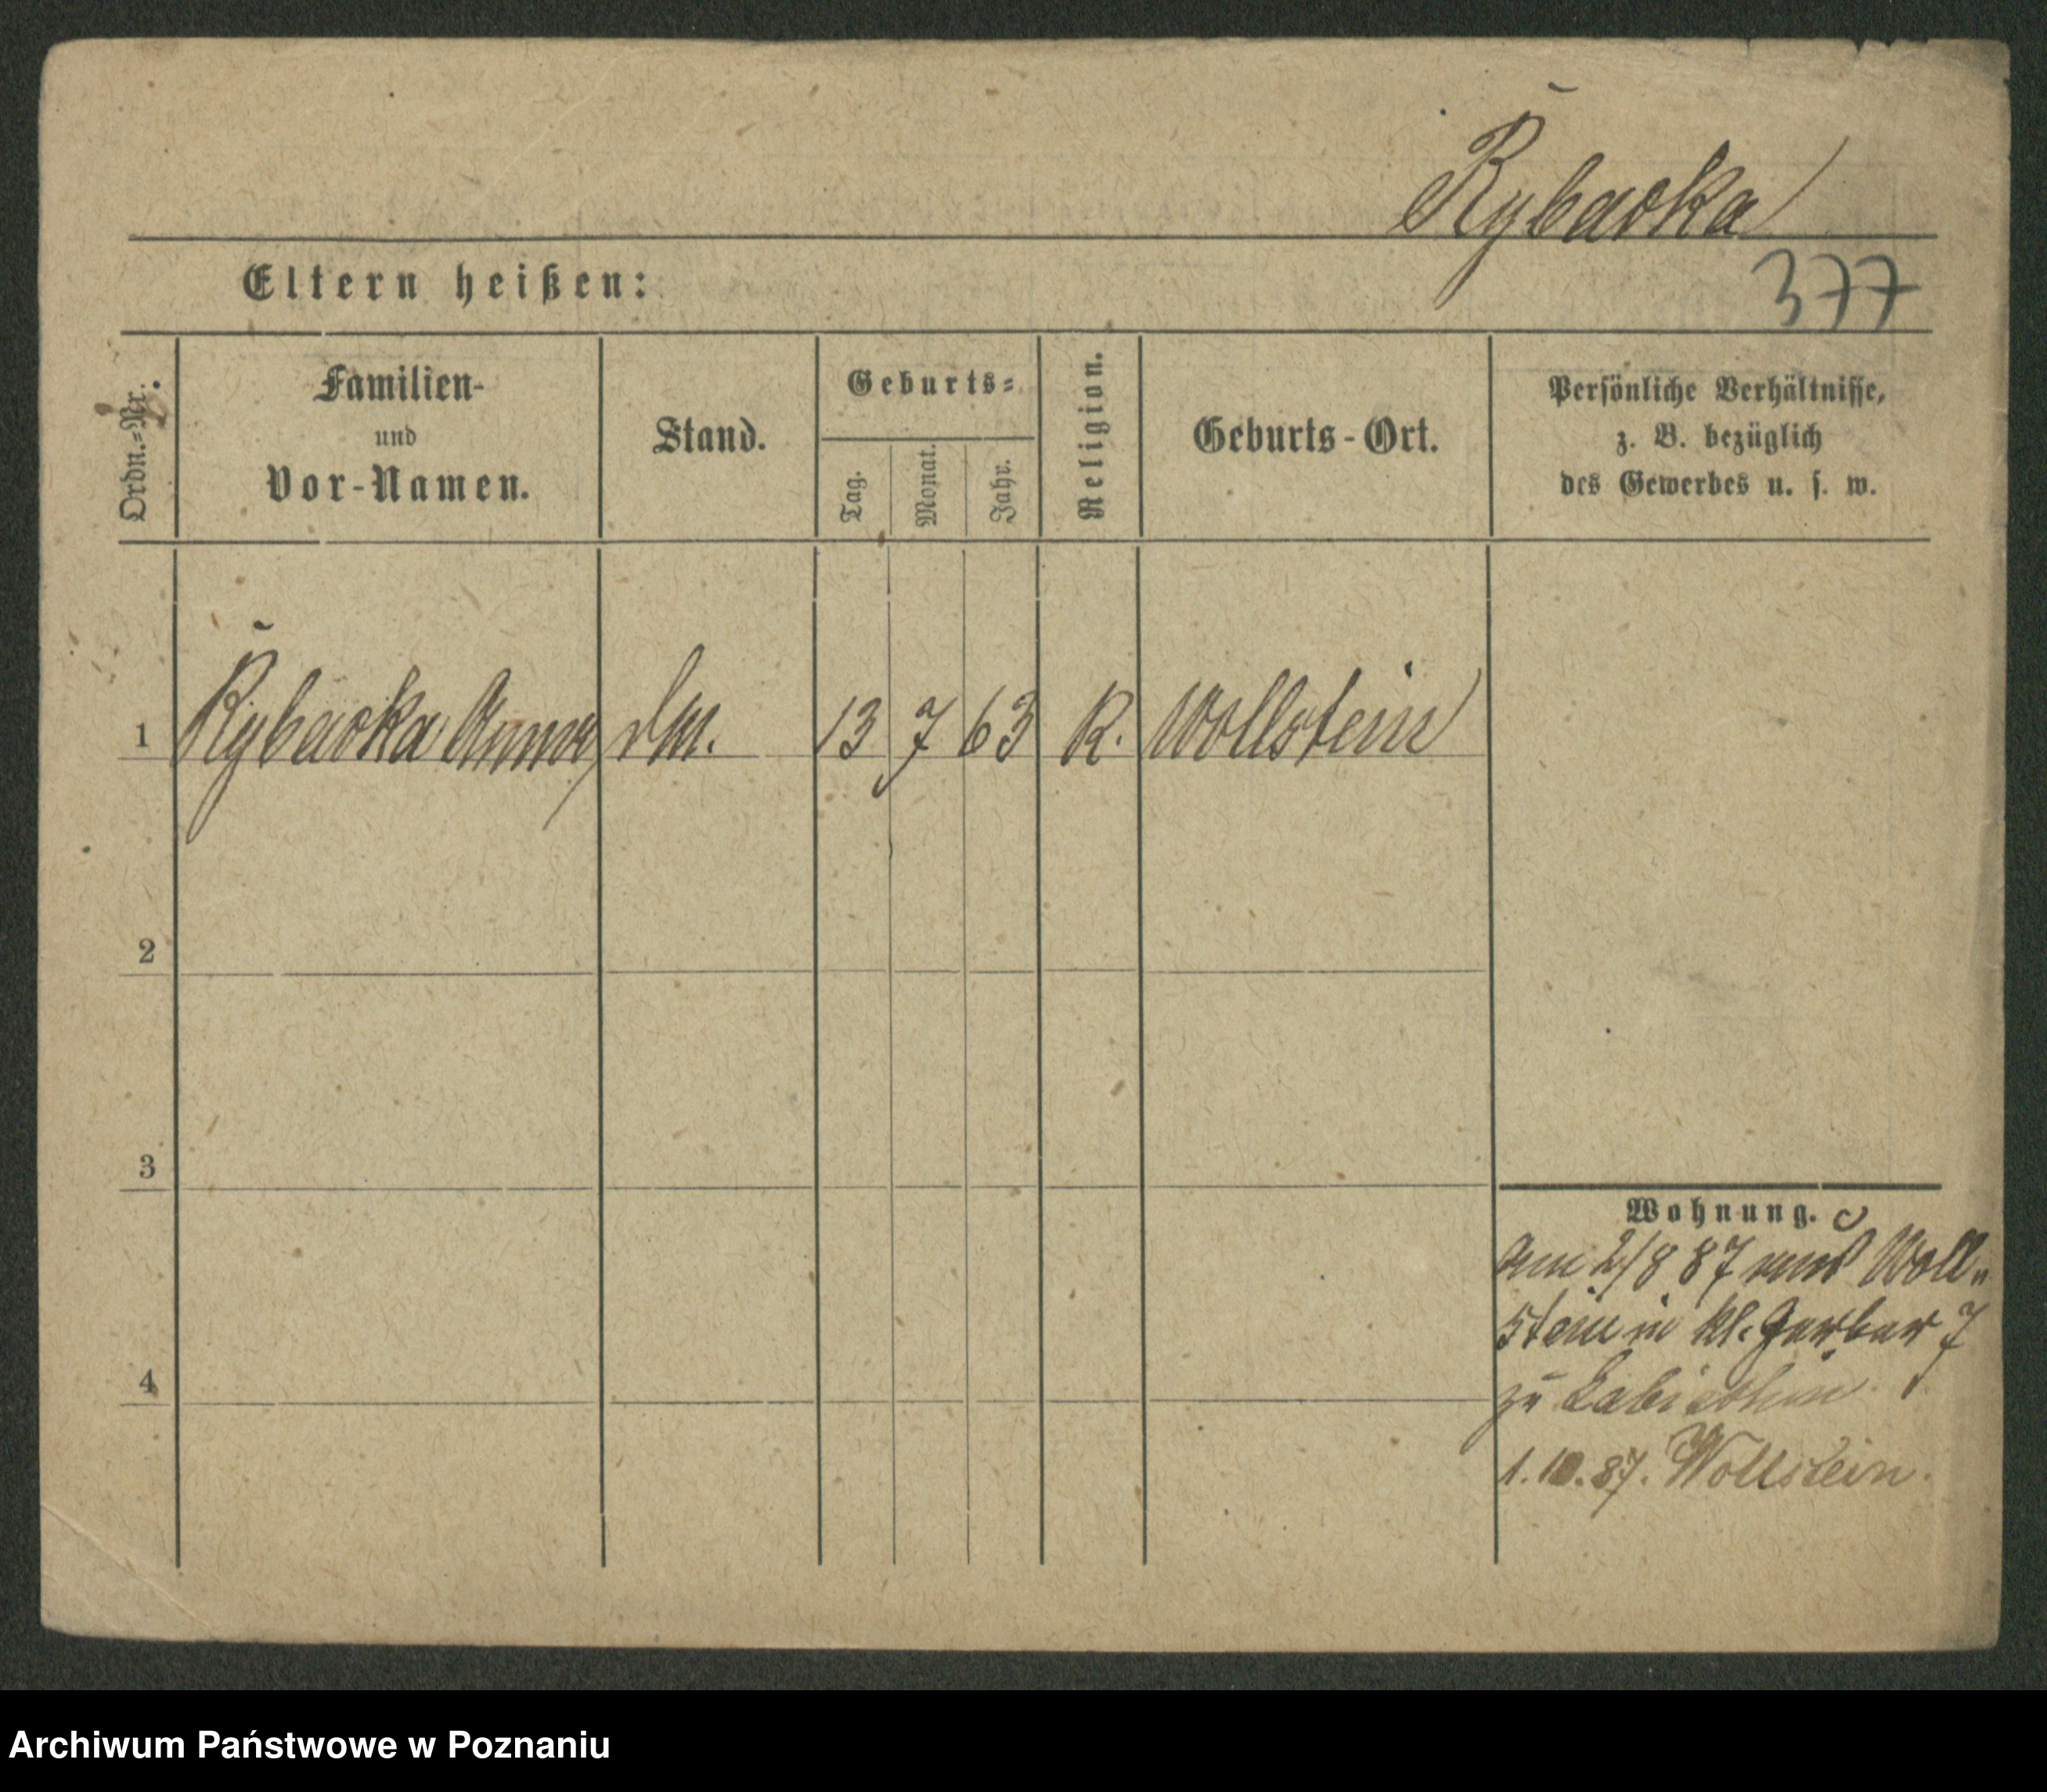 Rybacka
377
Eltern heißen:
Ordn.-Nr.
Familien-
und
Vor-Namen.
Stand.
Geburts-
Tag.
Monat.
Jahr.
Religion.
Geburts-Ort.
Persönliche Verhältnisse,
z. B. bezüglich
des Gewerbes u. s. w.
1 Rybacka Anna 13 7 63 K. Wollstein
2
3
4
Wohnung.
am 2/8 87 aus Woll-
stein in kl. Gerber 7
zu
1.10.87. Wollstein.
Archiwum Państwowe w Poznaniu